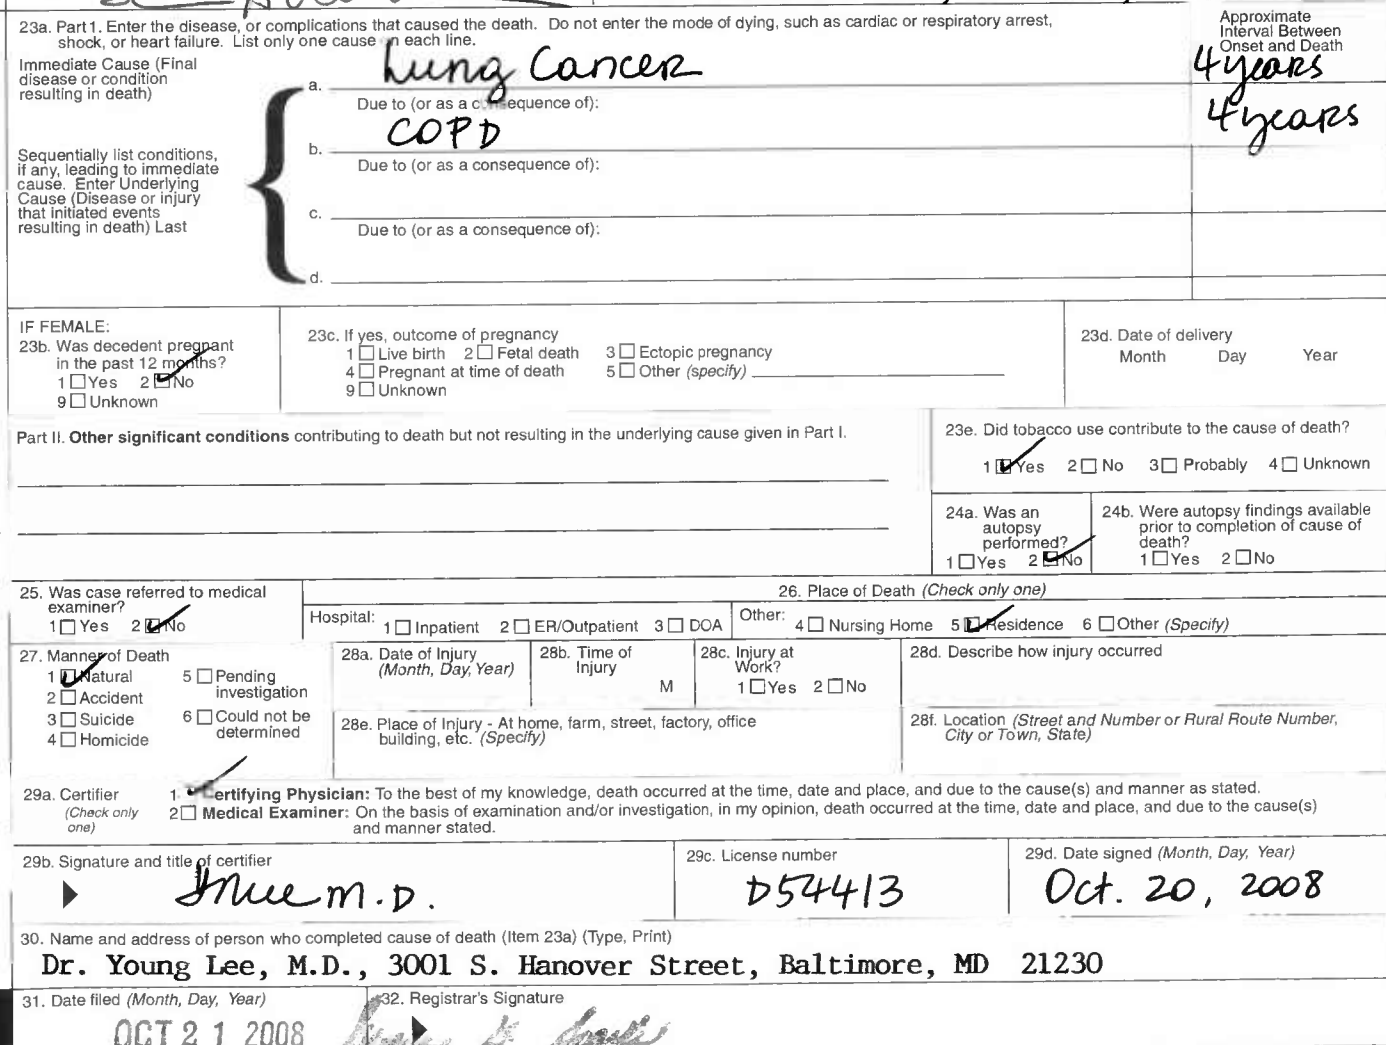 23a. Part 1. Enter the disease, or complications that caused the death. Do not enter the mode of dying, such as cardiac or respiratory arrest,
shock, or heart failure. List only one cause on each line.
Approximate
Interval Between
Onset and Death
Immediate Cause (Final
disease or condition
resulting in death)
a. Lung Cancer 4 years
Due to (or as a consequence of):
b. COPD 4 years
Due to (or as a consequence of):
Sequentially list conditions,
if any, leading to immediate
cause. Enter Underlying
Cause (Disease or injury
that initiated events
resulting in death) Last
c.
Due to (or as a consequence of):
d.
IF FEMALE:
23b. Was decedent pregnant
in the past 12 months?
1 ☐ Yes 2 ☑ No
9 ☐ Unknown
23c. If yes, outcome of pregnancy
1 ☐ Live birth 2 ☐ Fetal death 3 ☐ Ectopic pregnancy
4 ☐ Pregnant at time of death 5 ☐ Other (specify)
9 ☐ Unknown
23d. Date of delivery
Month Day Year
Part II. Other significant conditions contributing to death but not resulting in the underlying cause given in Part I.
23e. Did tobacco use contribute to the cause of death?
1 ☑ Yes 2 ☐ No 3 ☐ Probably 4 ☐ Unknown
24a. Was an
autopsy
performed?
1 ☐ Yes 2 ☑ No
24b. Were autopsy findings available
prior to completion of cause of
death?
1 ☐ Yes 2 ☐ No
25. Was case referred to medical
examiner?
1 ☐ Yes 2 ☑ No
26. Place of Death (Check only one)
Hospital: 1 ☐ Inpatient 2 ☐ ER/Outpatient 3 ☐ DOA Other: 4 ☐ Nursing Home 5 ☑ Residence 6 ☐ Other (Specify)
27. Manner of Death
1 ☑ Natural 5 ☐ Pending
investigation
2 ☐ Accident
3 ☐ Suicide 6 ☐ Could not be
determined
4 ☐ Homicide
28a. Date of Injury
(Month, Day, Year)
28b. Time of
Injury
M
28c. Injury at
Work?
1 ☐ Yes 2 ☐ No
28d. Describe how injury occurred
28e. Place of Injury - At home, farm, street, factory, office
building, etc. (Specify)
28f. Location (Street and Number or Rural Route Number,
City or Town, State)
29a. Certifier
(Check only
one)
1 ☑ Certifying Physician: To the best of my knowledge, death occurred at the time, date and place, and due to the cause(s) and manner as stated.
2 ☐ Medical Examiner: On the basis of examination and/or investigation, in my opinion, death occurred at the time, date and place, and due to the cause(s)
and manner stated.
29b. Signature and title of certifier
M.D.
29c. License number
D54413
29d. Date signed (Month, Day, Year)
Oct. 20, 2008
30. Name and address of person who completed cause of death (Item 23a) (Type, Print)
Dr. Young Lee, M.D., 3001 S. Hanover Street, Baltimore, MD 21230
31. Date filed (Month, Day, Year)
OCT 21 2008
32. Registrar's Signature